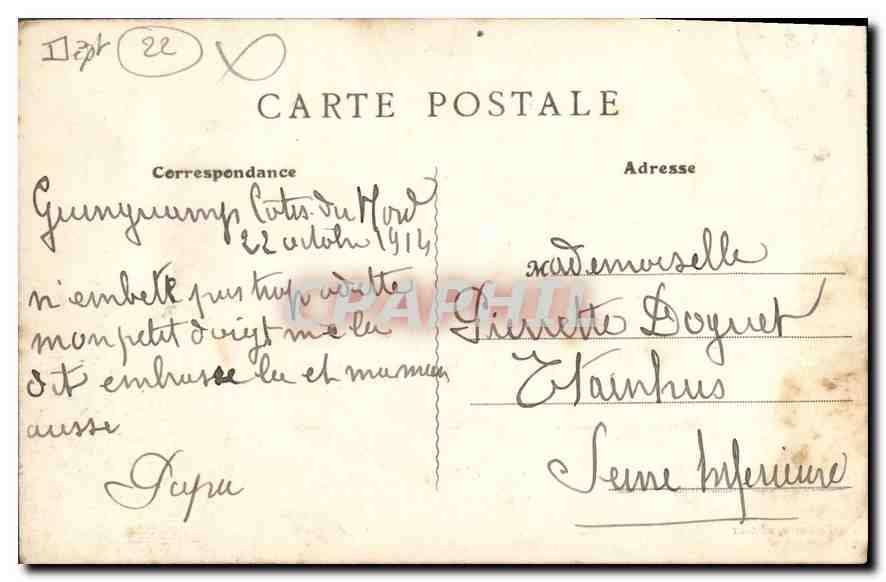 Dept 22
CARTE POSTALE
Correspondance
Guinguamp Cotes-du Nord
22 octobre 1914
n'embete pas trop odette
mon petit doigt me la
dit embrasse la et maman
ausse
Papa
Adresse
Mademoiselle
Pierrette Doguet
Etainhus
Seine Inferieure
CPAPHIL